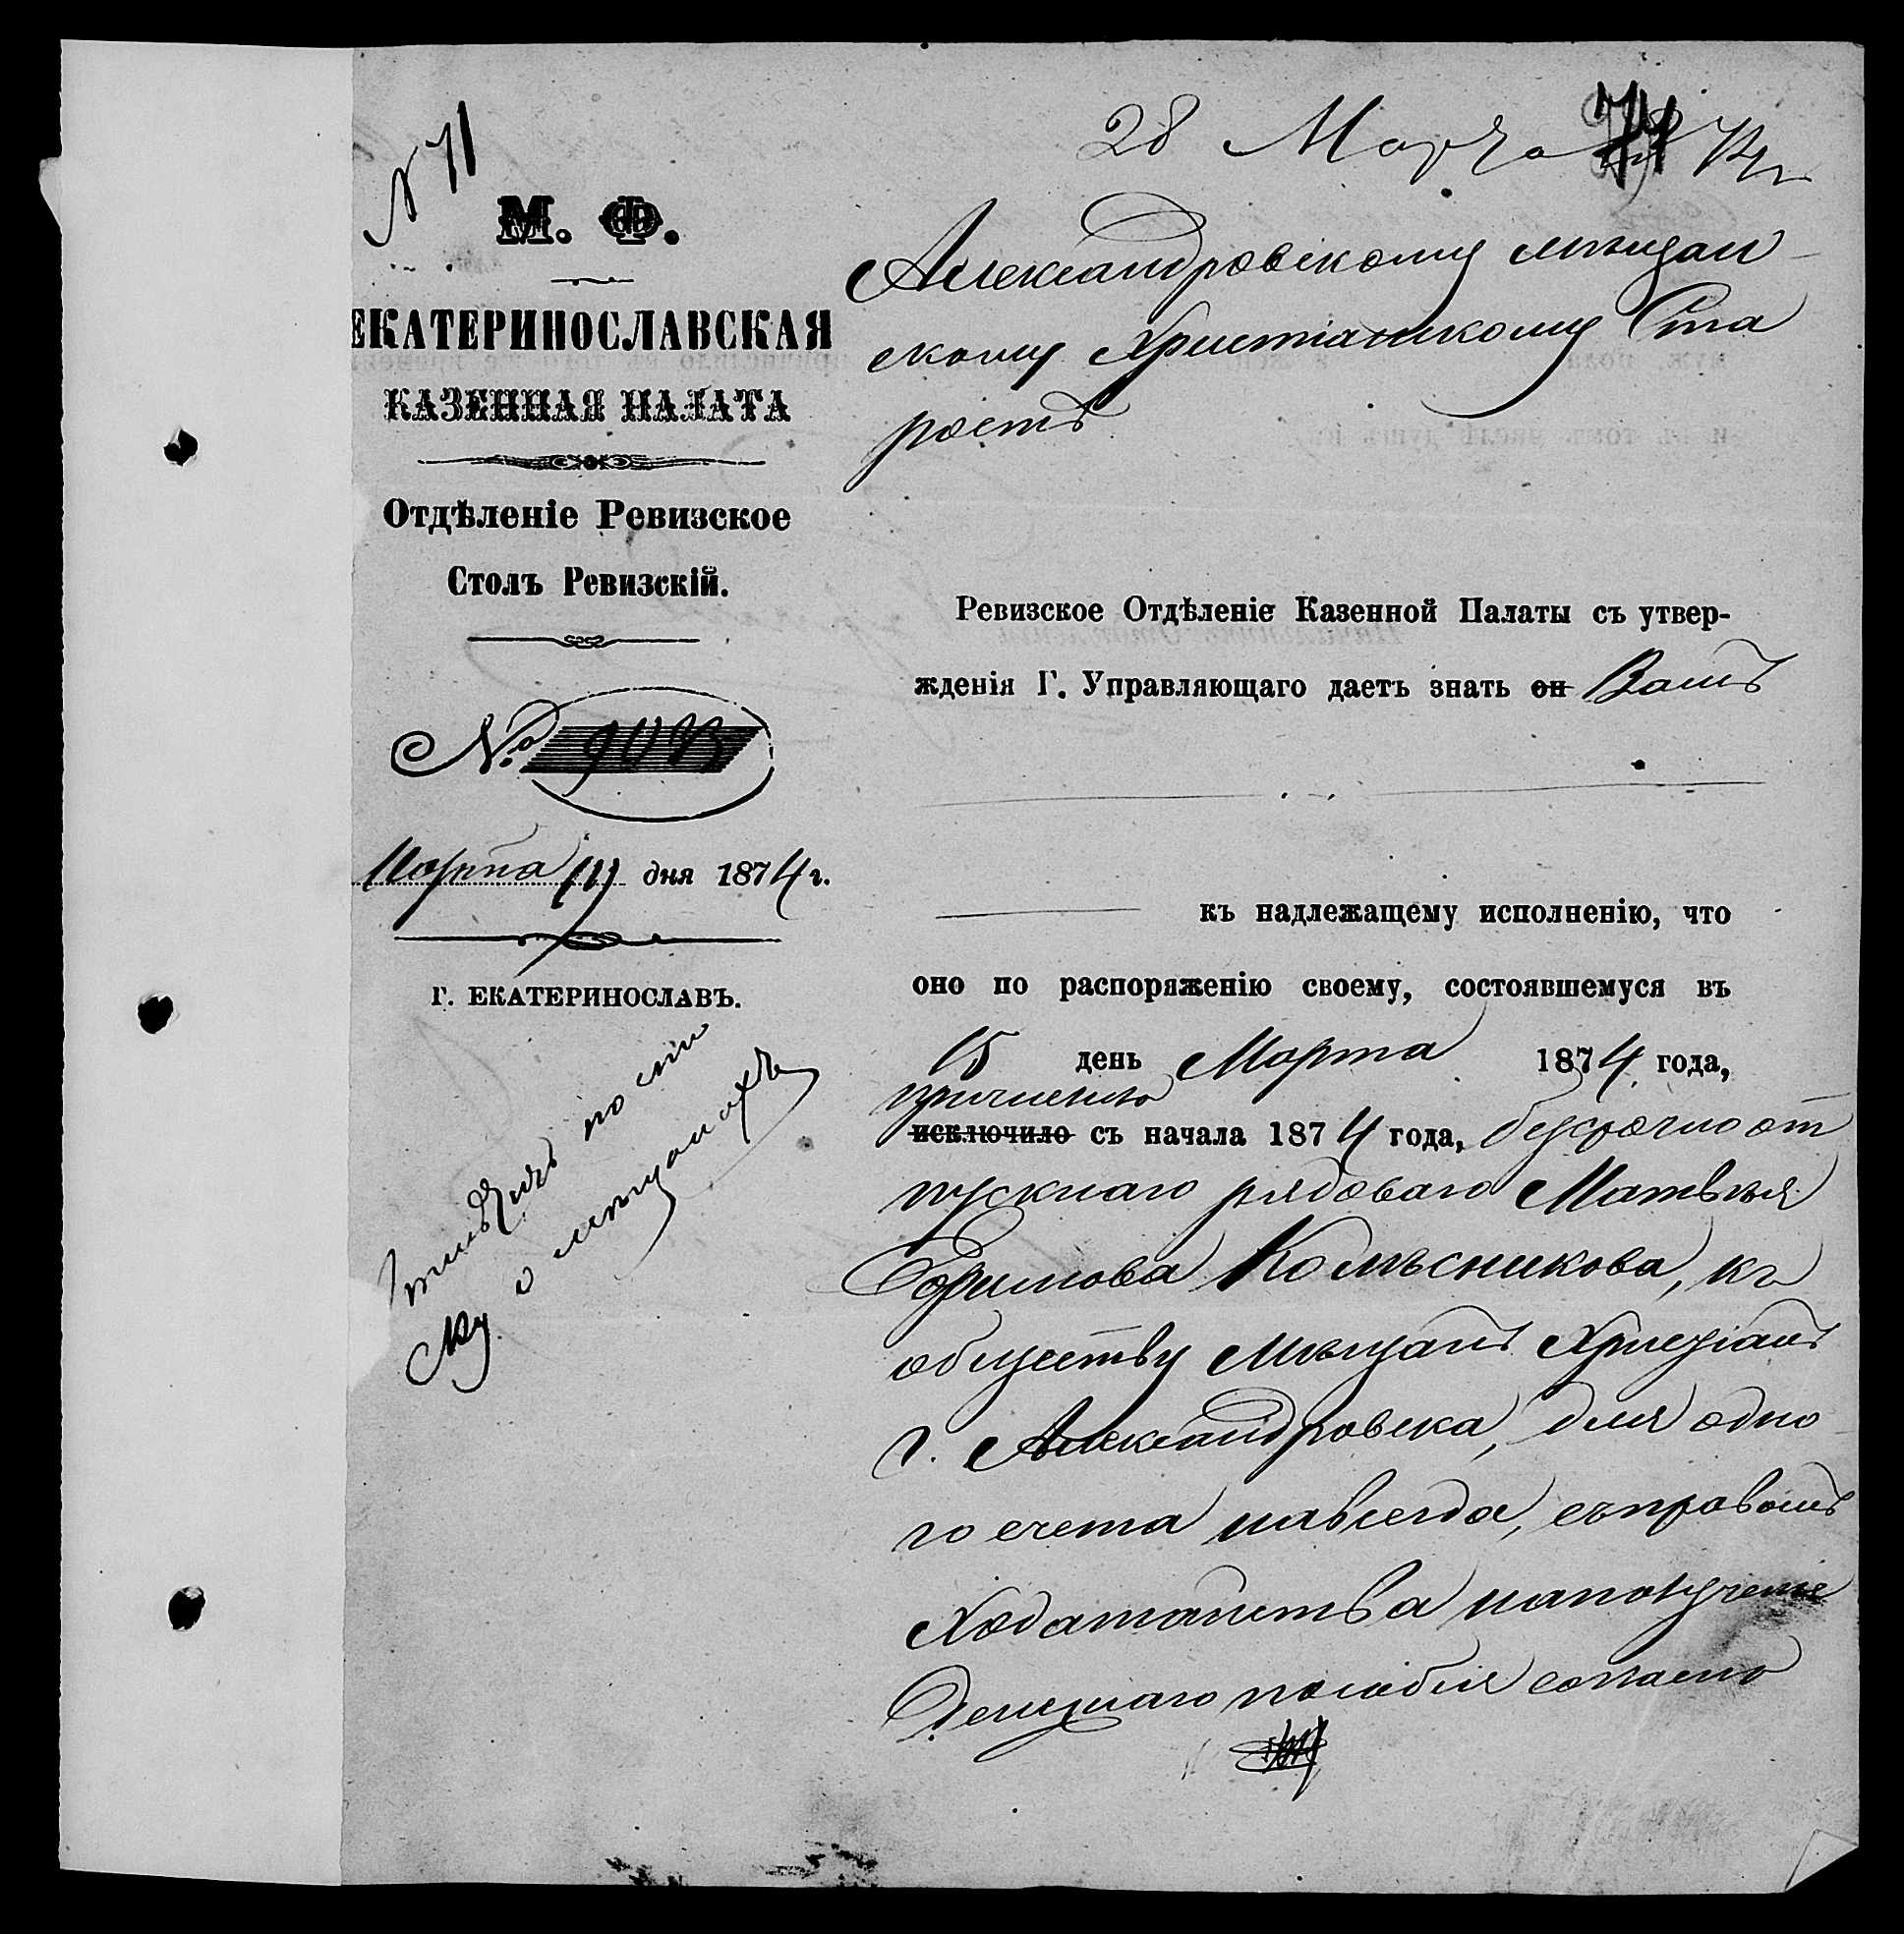 № 71
28 Марта
М. Ф.
ЕКАТЕРИНОСЛАВСКАЯ
КАЗЕННАЯ ПАЛАТА
Отдѣленіе Ревизское
Столъ Ревизскій.
№
Марта дня 1874 г.
Г. ЕКАТЕРИНОСЛАВЪ.
по сти
о мѣщанахъ
Александровскому мѣщан-
скому Христіанскому Ста
ростѣ
Ревизское Отдѣленіе Казенной Палаты съ утвер-
жденія Г. Управляющаго даетъ знать он Вамъ
къ надлежащему исполненію, что
оно по распоряженію своему, состоявшемуся въ
15 день Марта 1874 года,
причислило
исключило съ начала 1874 года, безсрочноот
пускнаго рядоваго Матвѣя
Ефимова Колѣсникова, къ
обществу Мѣщанъ Христіанъ
г. Александровска, для одно
го счета навсегда, съ правомъ
Ходатайства на полученіе
Денежнаго пособія согласно